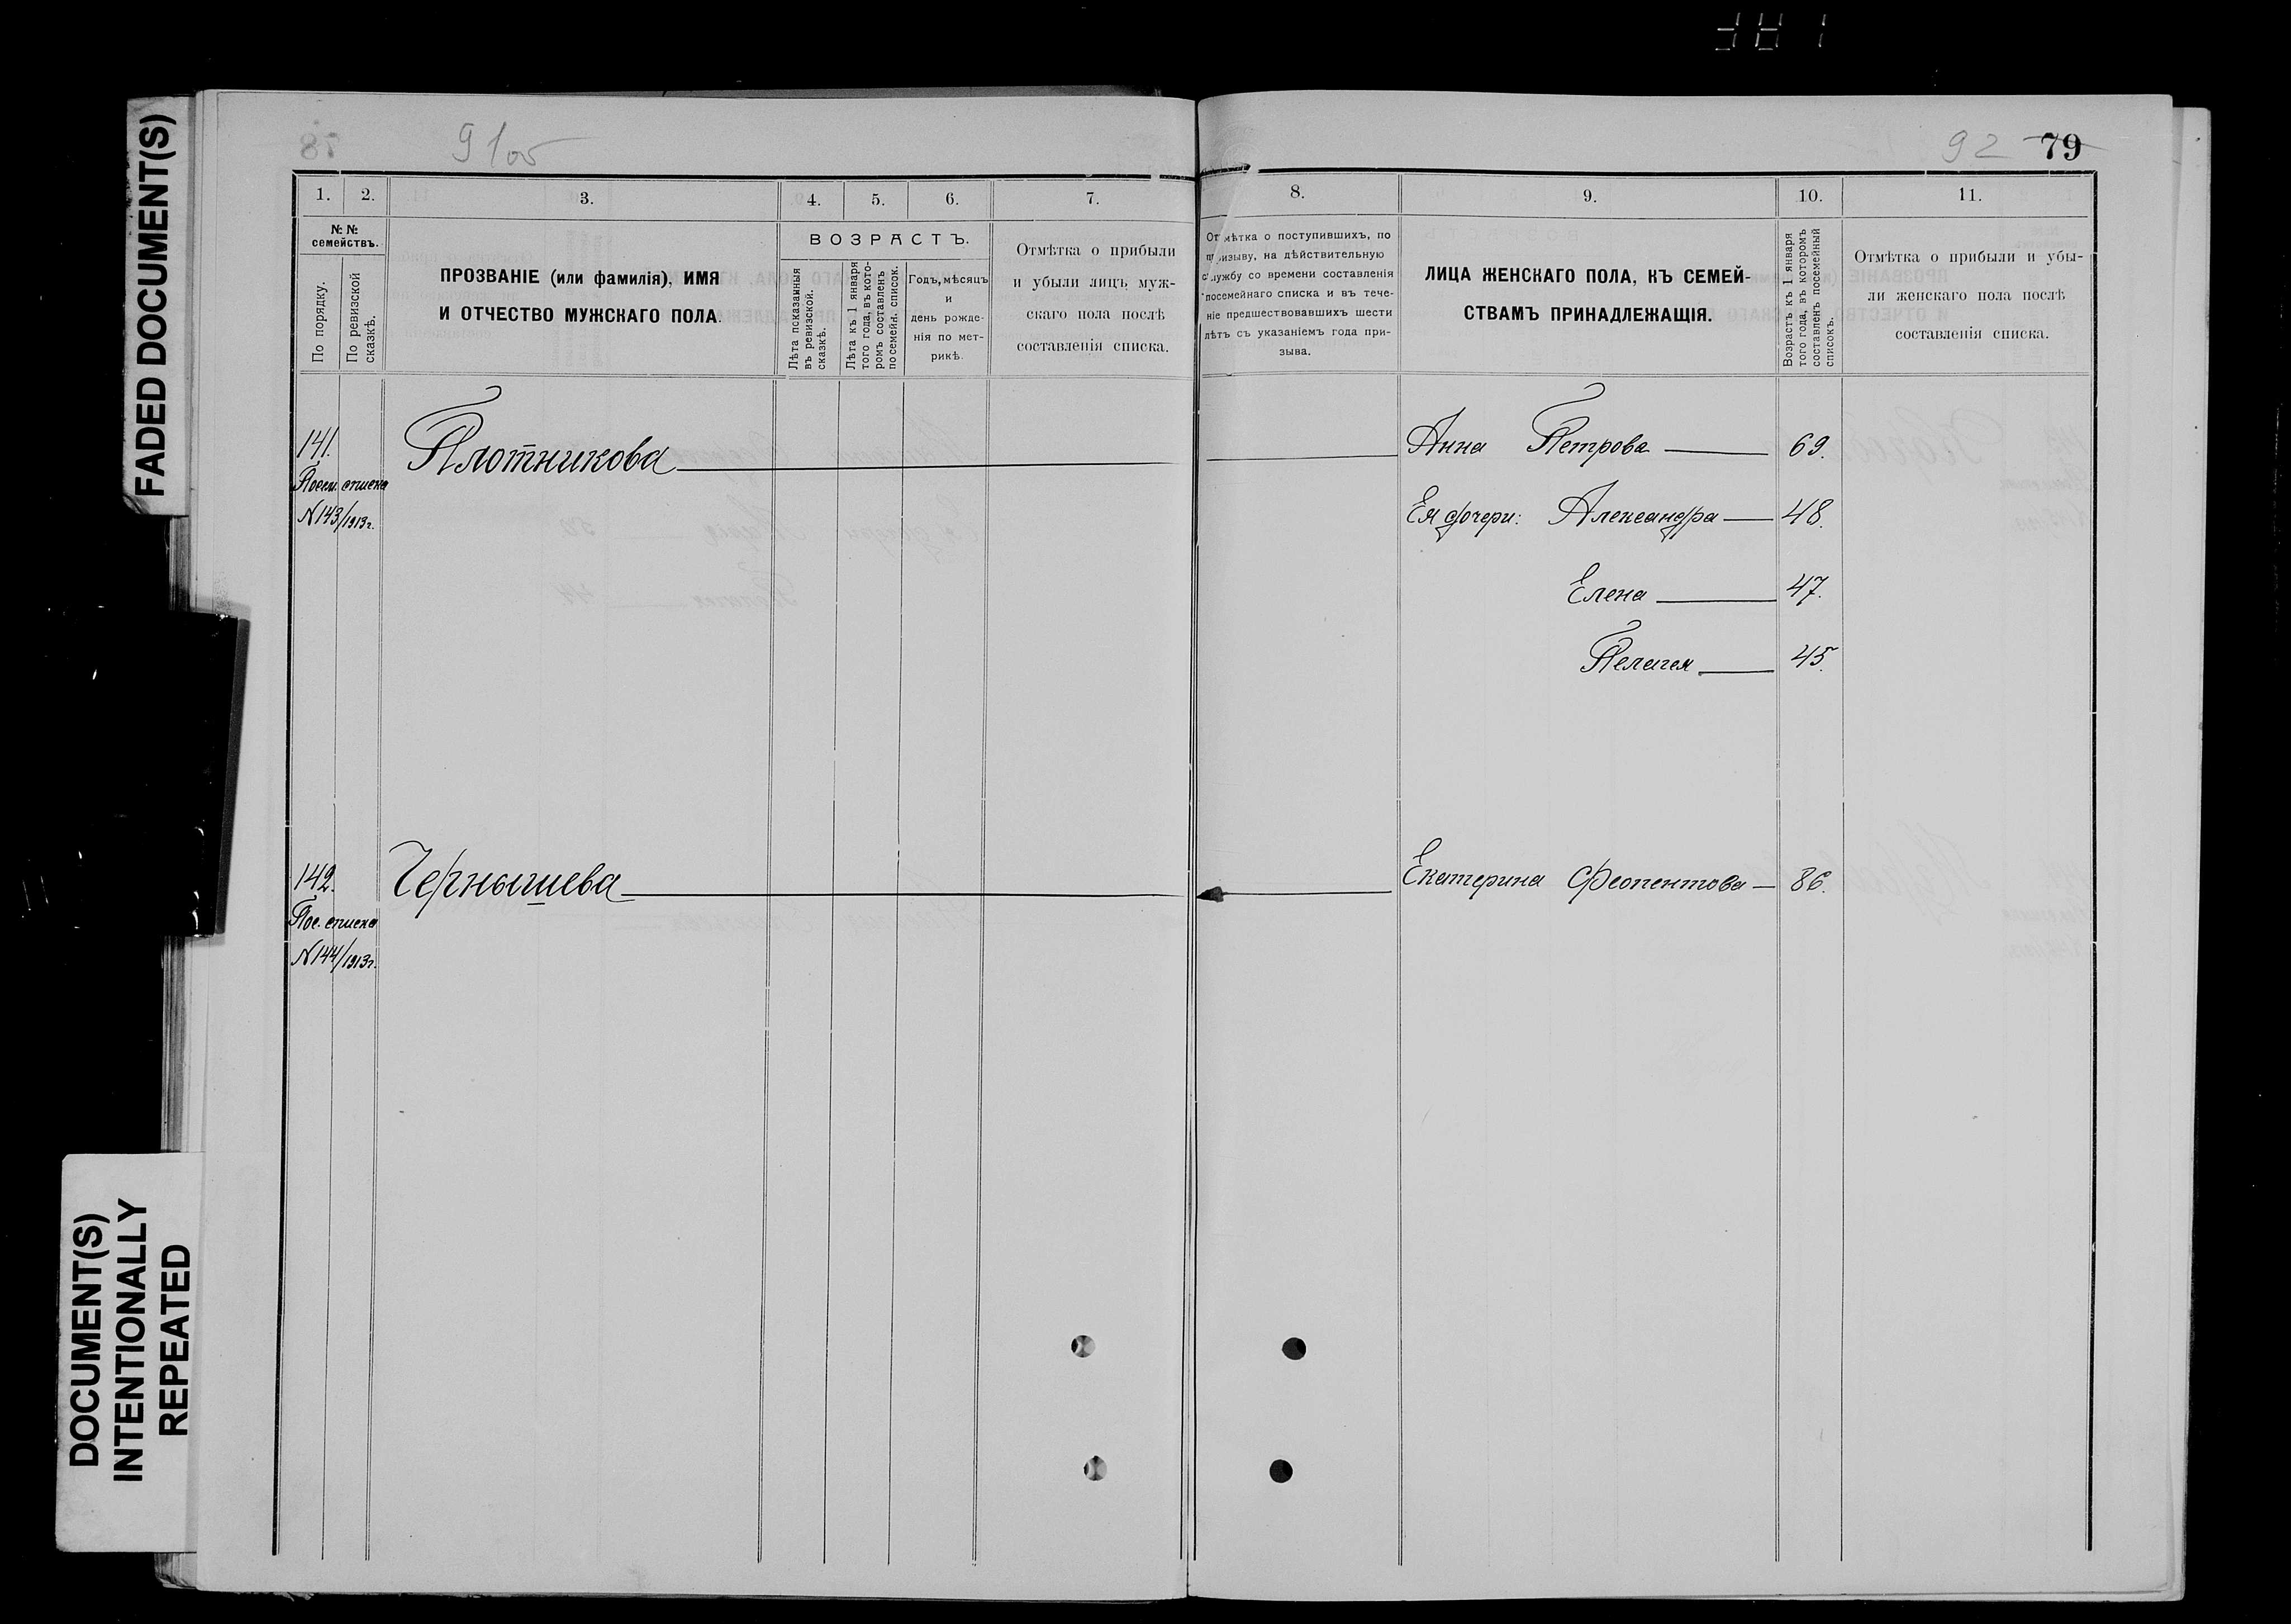 FADED DOCUMENT(S)
DOCUMENT(S)
INTENTIONALLY
REPEATED
91об
92 79
1. 2. 3. 4. 5. 6. 7.
№ №
семействъ.
По порядку.
По ревизской
сказкѣ.
ПРОЗВАНІЕ (или фамилія), ИМЯ
И ОТЧЕСТВО МУЖСКАГО ПОЛА.
ВОЗРАСТЪ.
Лѣта показанныя
въ ревизской.
сказкѣ.
Лѣта къ 1 января
того года, въ кото-
ромъ составленъ
посемейн. список.
Годъ, мѣсяцъ
и
день рожде-
нія по мет-
рикѣ.
Отмѣтка о прибыли
и убыли лицъ муж-
скаго пола послѣ
составленія списка.
141. Плотникова
Посем. списка
N 143/1913г.
142. Чернышева
Пос. списка
N 144/1913г.
8. 9. 10. 11.
Отмѣтка о поступившихъ, по
призыву, на дѣйствительную
службу со времени составленія
посемейнаго списка и въ тече-
ніе предшествовавшихъ шести
лѣтъ съ указаніемъ года при-
зыва.
ЛИЦА ЖЕНСКАГО ПОЛА, КЪ СЕМЕЙ-
СТВАМЪ ПРИНАДЛЕЖАЩІЯ.
Возрастъ къ 1 января
того года, въ которомъ
составленъ посемейный
списокъ.
Отмѣтка о прибыли и убы-
ли женскаго пола послѣ
составленія списка.
Анна Петрова 69.
Ея дочери: Александра 48.
Елена 47.
Пелагея 45.
Екатерина Феопентова 86.